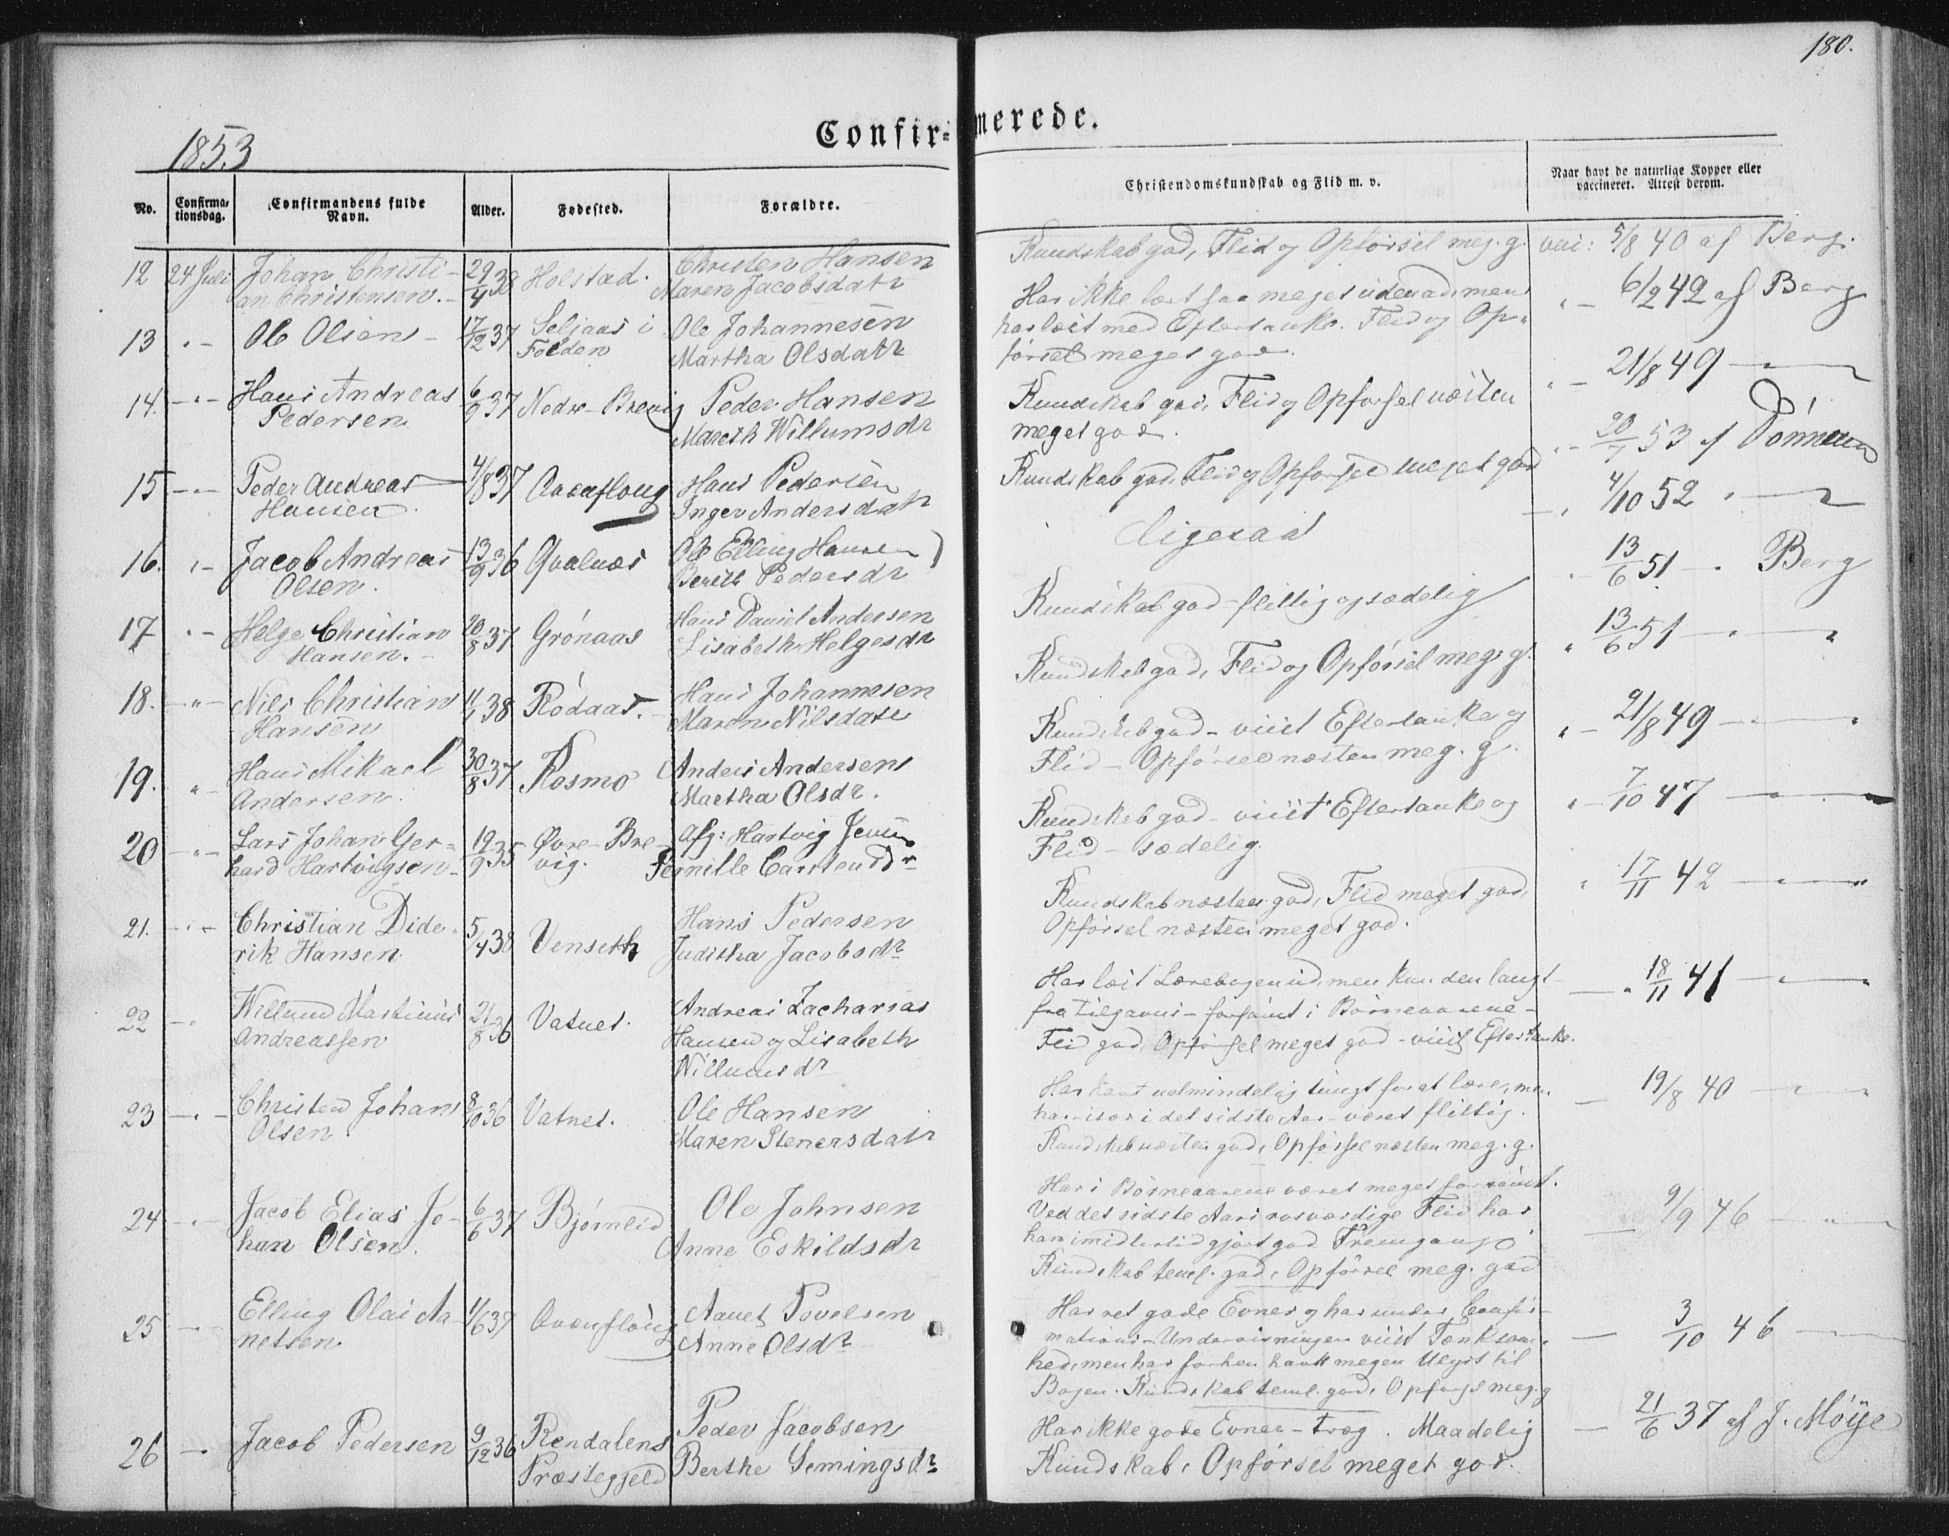 180.
Confirmerede.
1853
No.
Confirma-
tionsdag.
Confirmandens fulde
Navn.
Alder.
Fødested.
Forældre.
Christendomskundskab og Flid m. v.
Naar havt de naturlige Kopper eller
vaccineret. Attest derom.
12 24 Juli Johan Christi- 29/4 38 Holstad. Christen Hansen
an Christensen. Maren Jacobsdatr
Kundskab god, Flid og Opførsel meg. g. 5/8 40 af Berg.
13 " - Ole Olsen - 17/12 37 Seljaas i Ole Johannesen
Folden Martha Olsdatr
Har ikke lært saa meget udenad, men
har læst med Eftertanke. Flid og Op-
førsel meget god.
" - 6/2 42 af Berg
14. - " - Hans Andreas 6/9 37 Nedre-Brevig Peder Hansen
Pedersen Mareth Willumsdr
Kundskab god, Flid og Opførsel næsten
meget god.
" - 21/8 49 - " -
15 - " - Peder Andreas 4/8 37 Hans Pedersen
Hansen. Inger Andersdatr
Kundskab god, Flid og Opførsel meget god
" - 20/7 53 af Dønnum
16. " - Jacob Andreas 13/9 36 Qvalnæs Ole Elling Hansen
Olsen. Berith Pedersdr
ligesaa
4/10 52 " -
17 " - Helge Christian 20/8 37 Grønaas Hans Daniel Andersen
Hansen. - Lisabeth Helgesdr
Kundskab god - flittig og sædelig
" - 13/6 51 - " Berg
18. - " - Nils Christian 11/1 38 Rødaas. Hans Johannesen
Hansen Maren Nilsdatr
Kundskab god, Flid og Opførsel meg. g.
" - 13/6 51 - " - "
19. " Hans Mikael 30/8 37 Rosmo Anders Andersen
Andersen. Martha Olsdr.
Kundskab god - viist Eftertanke og
Flid - Opførsel næsten meg. g.
" - 21/8 49 - " - "
20 - " - Lars Johan Ger- 19/9 35 Øvre-Bre- Afg: Hartvig Jensen
hard Hartvigsen - vig. Pernille Carstensdr
Kundskab god - viist Eftertanke og
Flid - sædelig.
" - 7/10 47 - " -
21. - " - Christian Dide- 5/4 38 Venseth Hans Pedersen
rik Hansen Juditha Jacobsdr
Kundskab næsten god, Flid meget god,
Opførsel næsten meget god.
" 17/11 42 - " - "
22 - " Willum Martinus 21/8 36 Vatnet. Andreas Zacharias
Andreassen Hansen og Lisabeth
Willumsdr
Har læst Lærebogen ud, men kun den langt
fra tilgavns - forsømt i Børneaarene -
Flid god, Opførsel meget god - viist Eftertanke.
- " 18/11 41 - " - "
23 - " - Christen Johan 8/10 36 Vatnet. Ole Hansen
Olsen Maren Stenersdatr
Har havt ualmindelig tungt for at lære, men
har især i det sidste Aar været flittig.
Kundskab næsten god, Opførsel næsten meg. g.
- 19/8 40 - " - "
24 - " - Jacob Elias Jo- 6/6 37 Bjørnlid Ole Johnsen
han Olsen. Anne Eskildsdr
Har i Børneaarene været meget forsømt.
Ved det sidste Aars rosværdige Flid har
han imidlertid gjort god Fremgang
Kundskab teml. god, Opførsel meg. god
- 9/9 46 - " -
25 - " - Elling Olai Aa- 11/6 39 Aanet Povelsen
netsen. Anne Olsdr
Har ret gode Evner og har under Confir-
mations-Undervisningen viist Tænksom-
hed, men har forhen havt megen Ulyst til
Bogen. Kundskab teml. god, Opførsel meg. g
- 3/10 46 - " -
26 - " Jacob Pedersen 9/12 36 Rendalens Peder Jacobsen
Præstegjeld Berthe Semingsdr
Har ikke gode Evner - træg. Maadelig
Kundskab, Opførsel meget god.
- 21/6 37 af J. Møije